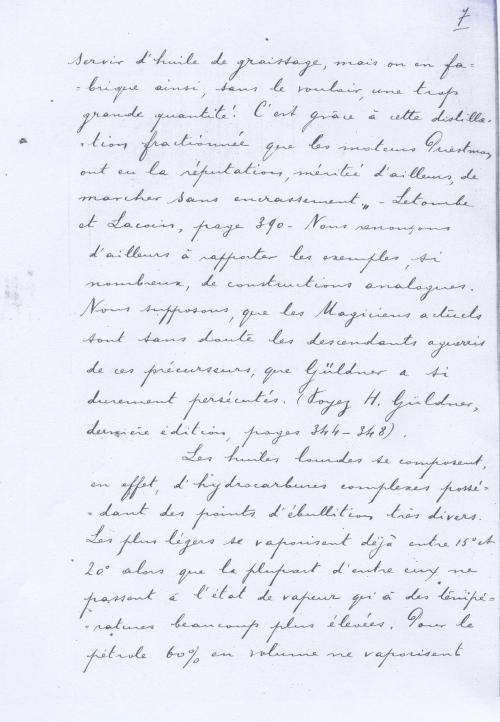 7
servir d'huile de graissage, mais on en fa=
=brique ainsi, sans le vouloir, une trop
grande quantité! C'est grâce à cette distilla=
=tion fractionnée que les moteurs Priestman
ont eu la réputation, méritée d'ailleurs, de
marcher sans encrassement" - Letombe
et Lacoin, page 390 - Nous renonçons
d'ailleurs à rapporter les exemples, si
nombreux, de constructions analogues.
Nous supposons, que les Magiciens actuels
sont sans doute les descendants aguerris
de ces précurseurs, que Güldner a si
durement persécutés. (Voyez H. Güldner,
dernière édition, pages 344-348).
Les huiles lourdes se composent,
en effet, d'hydrocarbures complexes possé=
=dant des points d'ébullition très divers.
Les plus légers se vaporisent déjà entre 15° et
20° alors que la plupart d'entre eux ne
passent à l'état de vapeur qu'à des tempé=
=ratures beaucoup plus élevées. Pour le
pétrole 60% en volume ne vaporisent